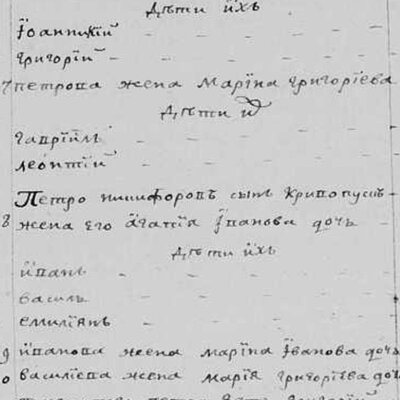 Дѣти ихъ
Іоанникій
григорій
7 петрова жена Марина григоріева
Дѣти их
гавріилъ
леонтій
Петро никифоровъ сынъ Кривопусъ
8 жена его агапія іванова дочь
Дѣти ихъ
иванъ
василь
емиліянъ
9 иванова жена марина іванова дочь
0 василіева жена марія григоріева до